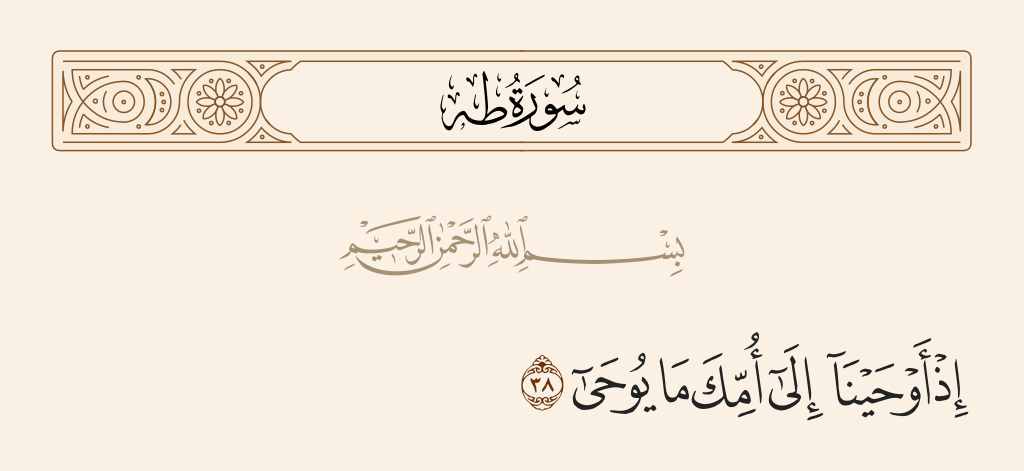 سُورَةُ طه
بِسْمِ ٱللَّهِ ٱلرَّحْمَٰنِ ٱلرَّحِيمِ
إِذْ أَوْحَيْنَآ إِلَىٰٓ أُمِّكَ مَا يُوحَىٰٓ ٣٨